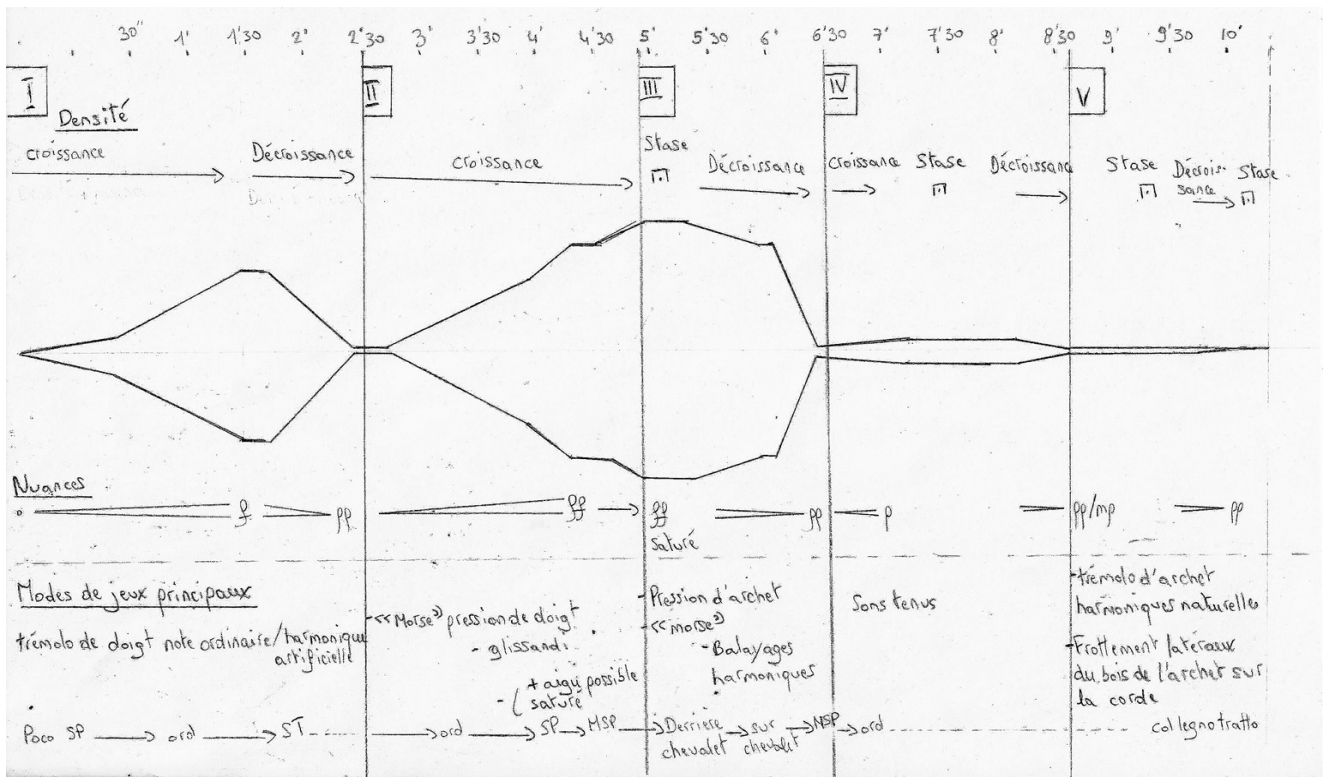 30" 1' 1'30 2' 2'30 3' 3'30 4' 4'30 5' 5'30 6' 6'30 7' 7'30 8' 8'30 9' 9'30 10'
I II III IV V
Densité
croissance Décroissance croissance Stase Décroissance croissance Stase Décroissance Stase Décrois-
sance Stase
Nuances
o f pp ff ff pp p pp/mp pp
saturé
Modes de jeux principaux
trémolo de doigt note ordinaire/harmonique
artificielle
-<<Morse>> pression de doigt
- glissandi
- ( + aigu possible
saturé
- Pression d'archet
- <<morse>>
- Balayages
harmoniques
Sons tenus
- trémolo d'archet
harmoniques naturelle
- Frottement latéraux
du bois de l'archet sur
la corde
Poco SP → ord → ST → ord → SP → MSP → Derrière
chevalet → sur
chevalet → MSP → ord col legno tratto